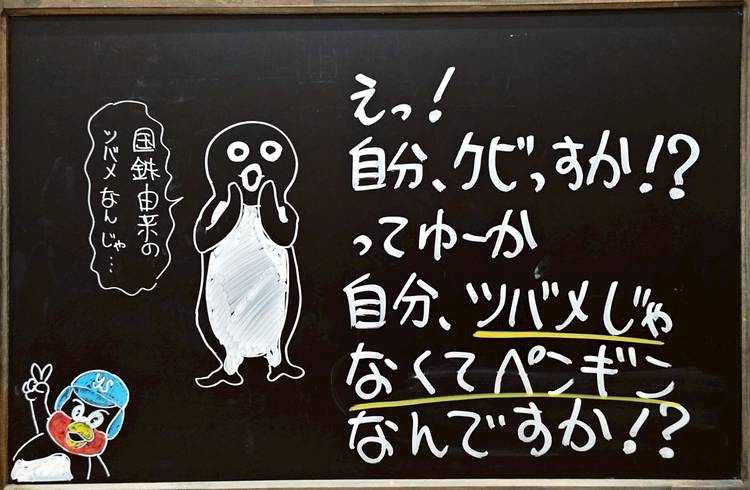 えっ!
自分、クビっすか!?
ってゆーか
自分、ツバメじゃ
なくてペンギン
なんですか!?
国鉄由来の
ツバメなんじゃ…
YS